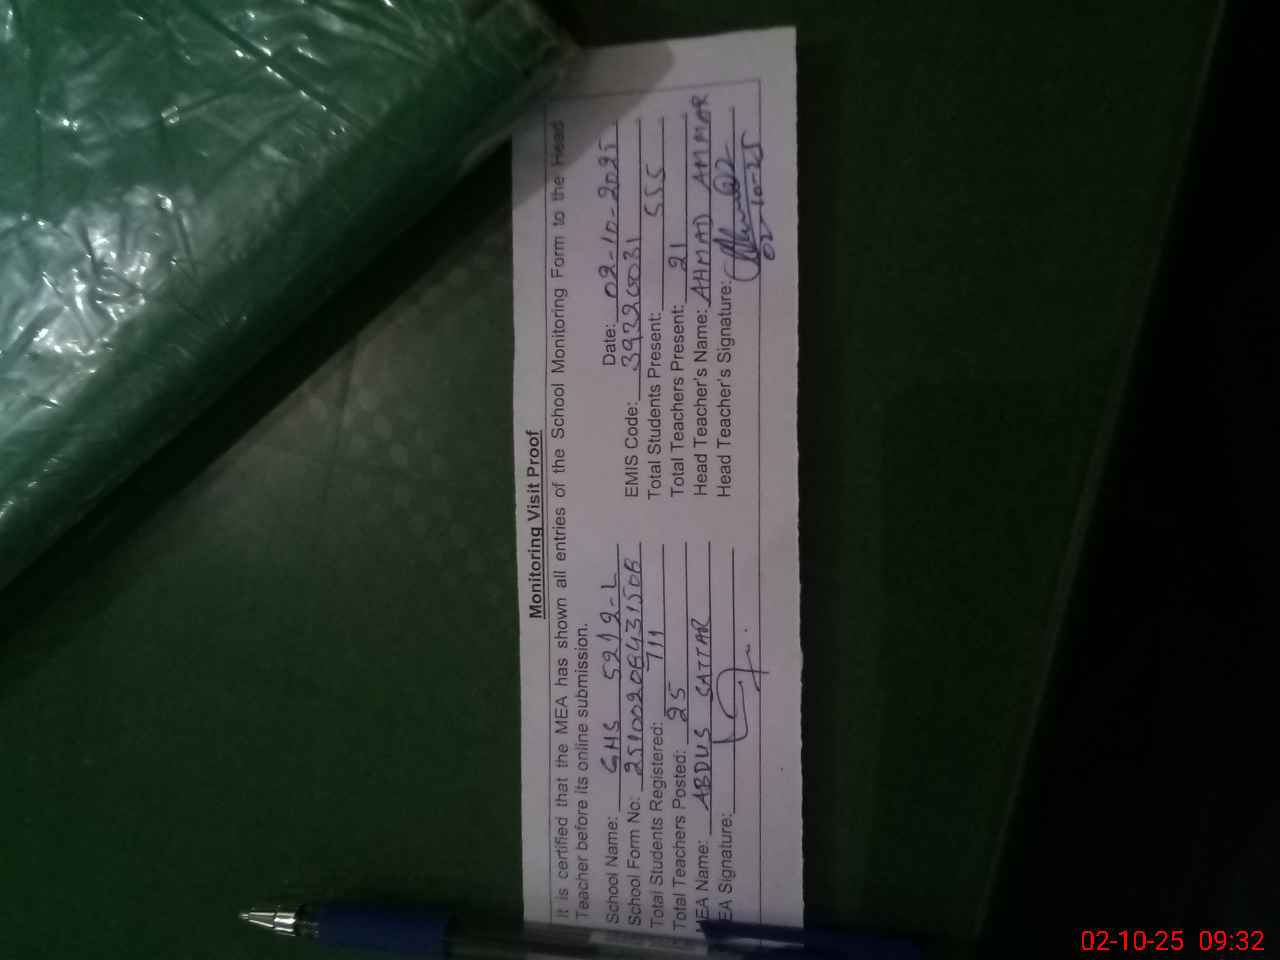 Monitoring Visit Proof
It is certified that the MEA has shown all entries of the School Monitoring Form to the Head
Teacher before its online submission.
School Name: GHS 52/2-L Date: 02-10-2025
School Form No: 2510020643150B EMIS Code: 39320031
Total Students Registered: 711 Total Students Present: 555
Total Teachers Posted: 25 Total Teachers Present: 21
MEA Name: ABDUS SATTAR Head Teacher's Name: AHMAD AMMAR
EA Signature: Head Teacher's Signature:
02-10-25
02-10-25 09:32